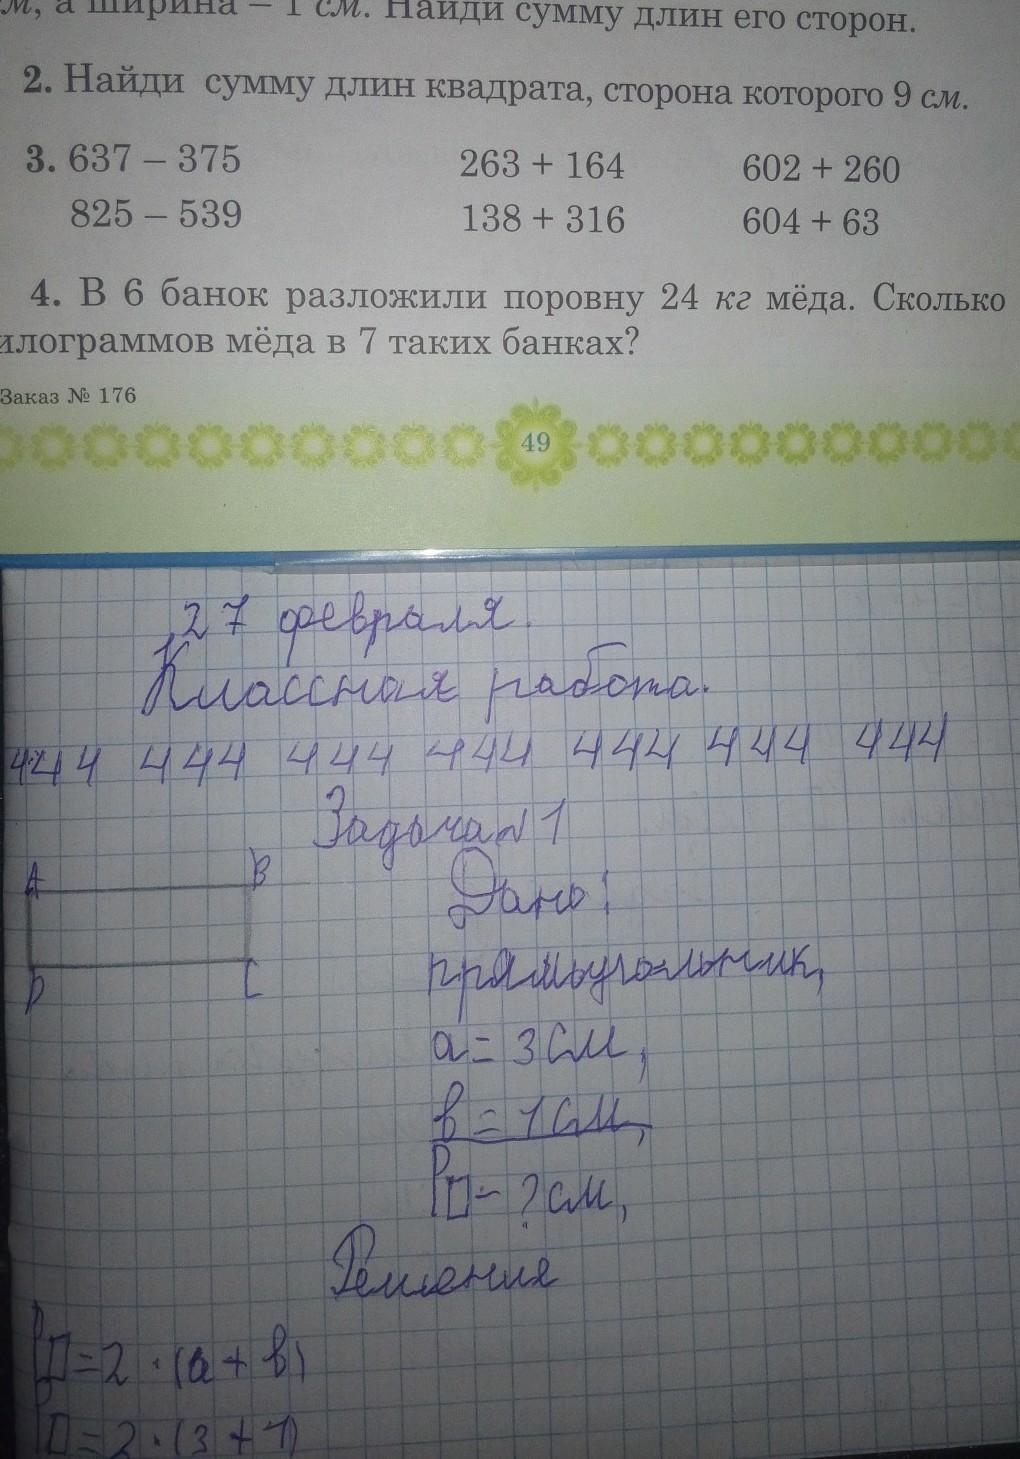 м, а ширина – 1 см. Найди сумму длин его сторон.
2. Найди сумму длин квадрата, сторона которого 9 см.
3. 637 – 375 263 + 164 602 + 260
825 – 539 138 + 316 604 + 63
4. В 6 банок разложили поровну 24 кг мёда. Сколько
илограммов мёда в 7 таких банках?
Заказ № 176
49
27 февраля.
Классная работа.
444 444 444 444 444 444 444
Задача № 1
A B
D C
Дано:
прямоугольник,
a = 3 см,
в = 1 см,
P□ – ? см,
Решения
P□ = 2 · (a + в)
P□ = 2 · (3 + 1)